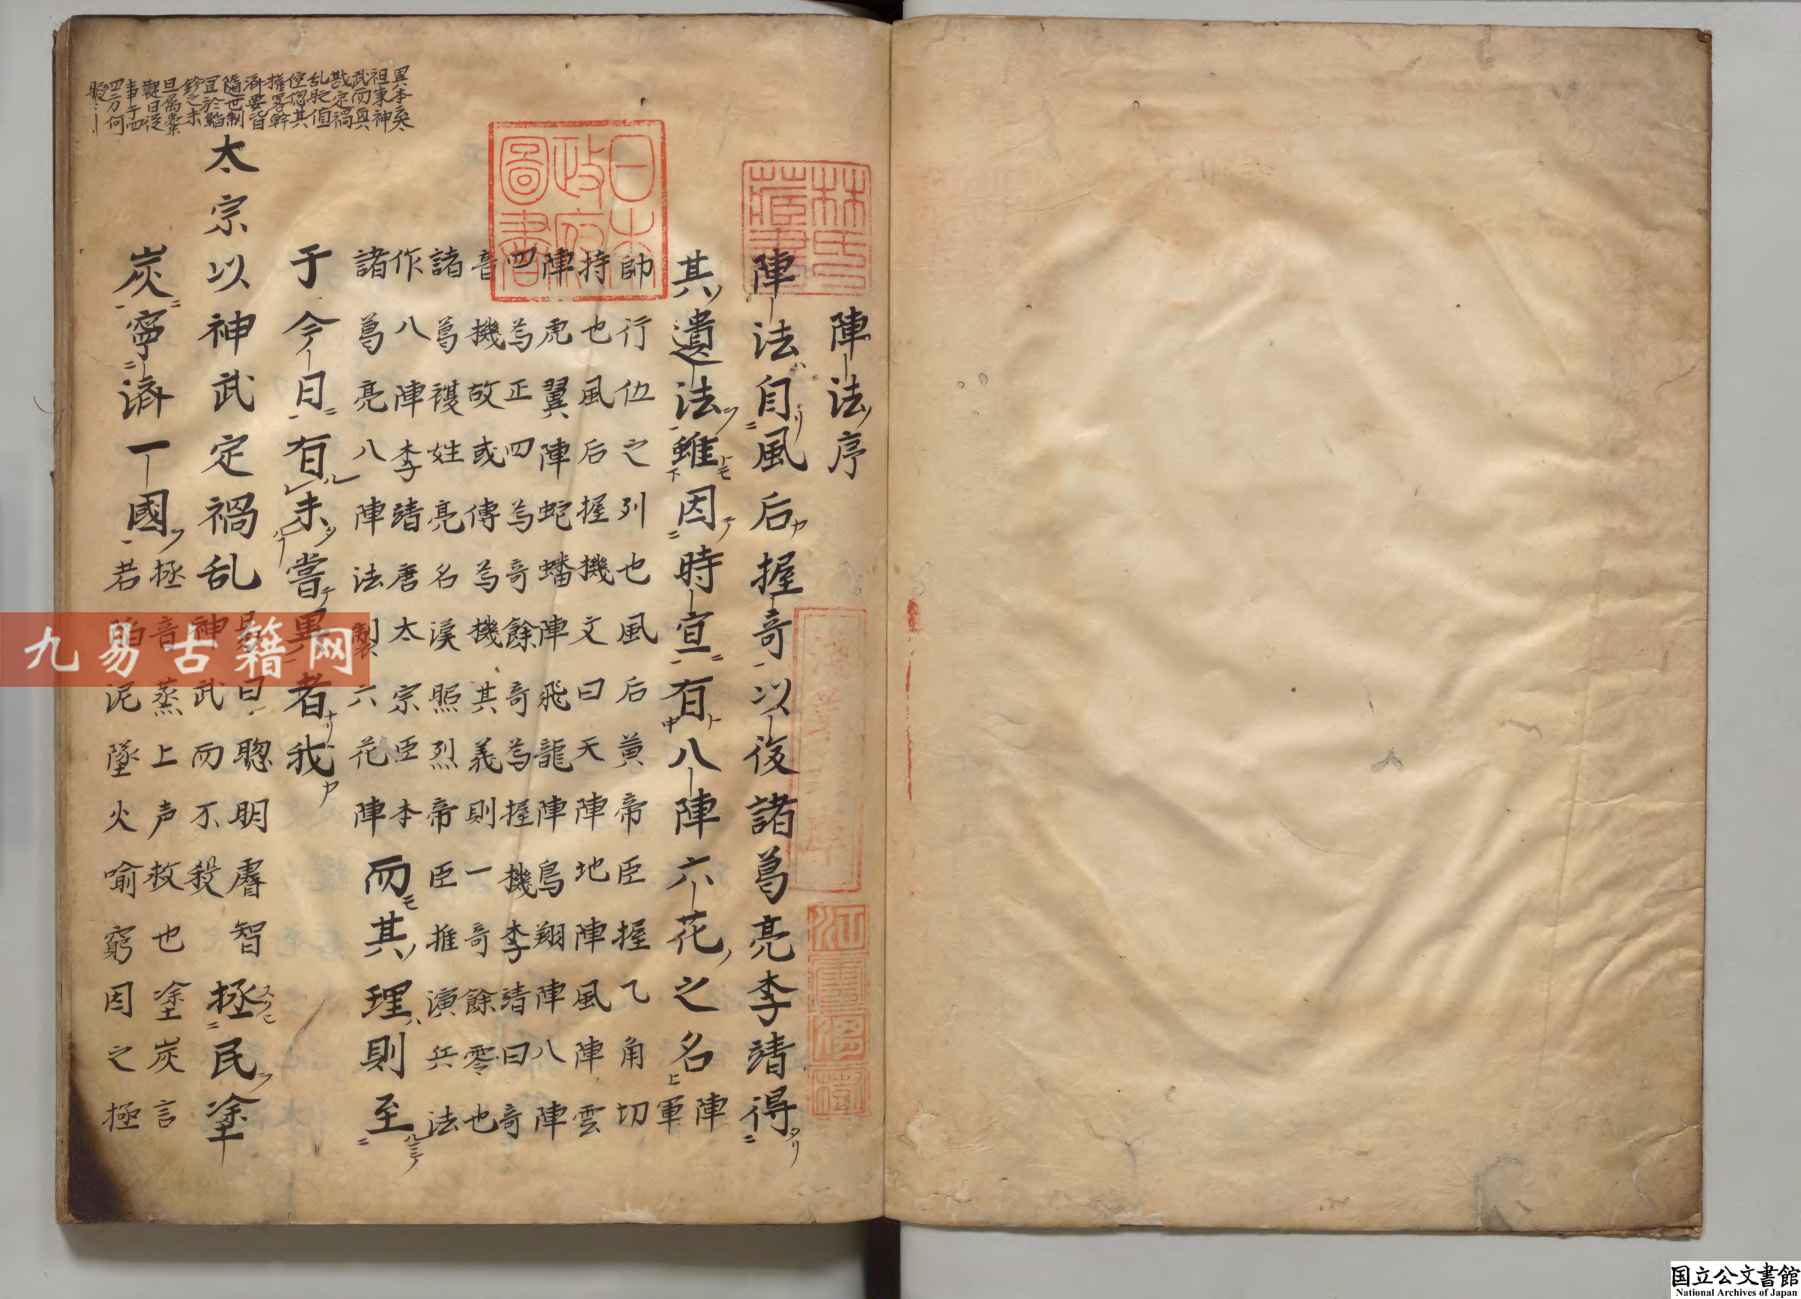 陣法序
陣法自風后握奇以後諸葛亮李靖得
其遺法雖因時宣有八陣六花之名
陣
軍
帥行伍之列也風后黄帝臣握乙角切
持也風后握機文曰天陣地陣風陣雲
陣虎翼陣蛇蟠陣飛龍陣鳥翔陣八陣
四為正四為奇餘奇為握機李靖曰奇
音機故或傳為機其義則一奇餘零也
諸葛複姓亮名漢照烈帝臣推演兵法
作八陣李靖唐太宗臣本
諸葛亮八陣法製六花陣
而其理則至
于今日有未嘗異者我
太宗以神武定禍乱
易曰聰明睿智
神武而不殺
拯民塗
炭寧済一國
拯音蒸上声救也塗炭言
若陷泥墜火喻窮困之極
異本矣
祖東神
武而興
戡定禍
随世制
日本政府圖書
林氏藏書
江雲渭樹
九易古籍网
国立公文書館
National Archives of Japan